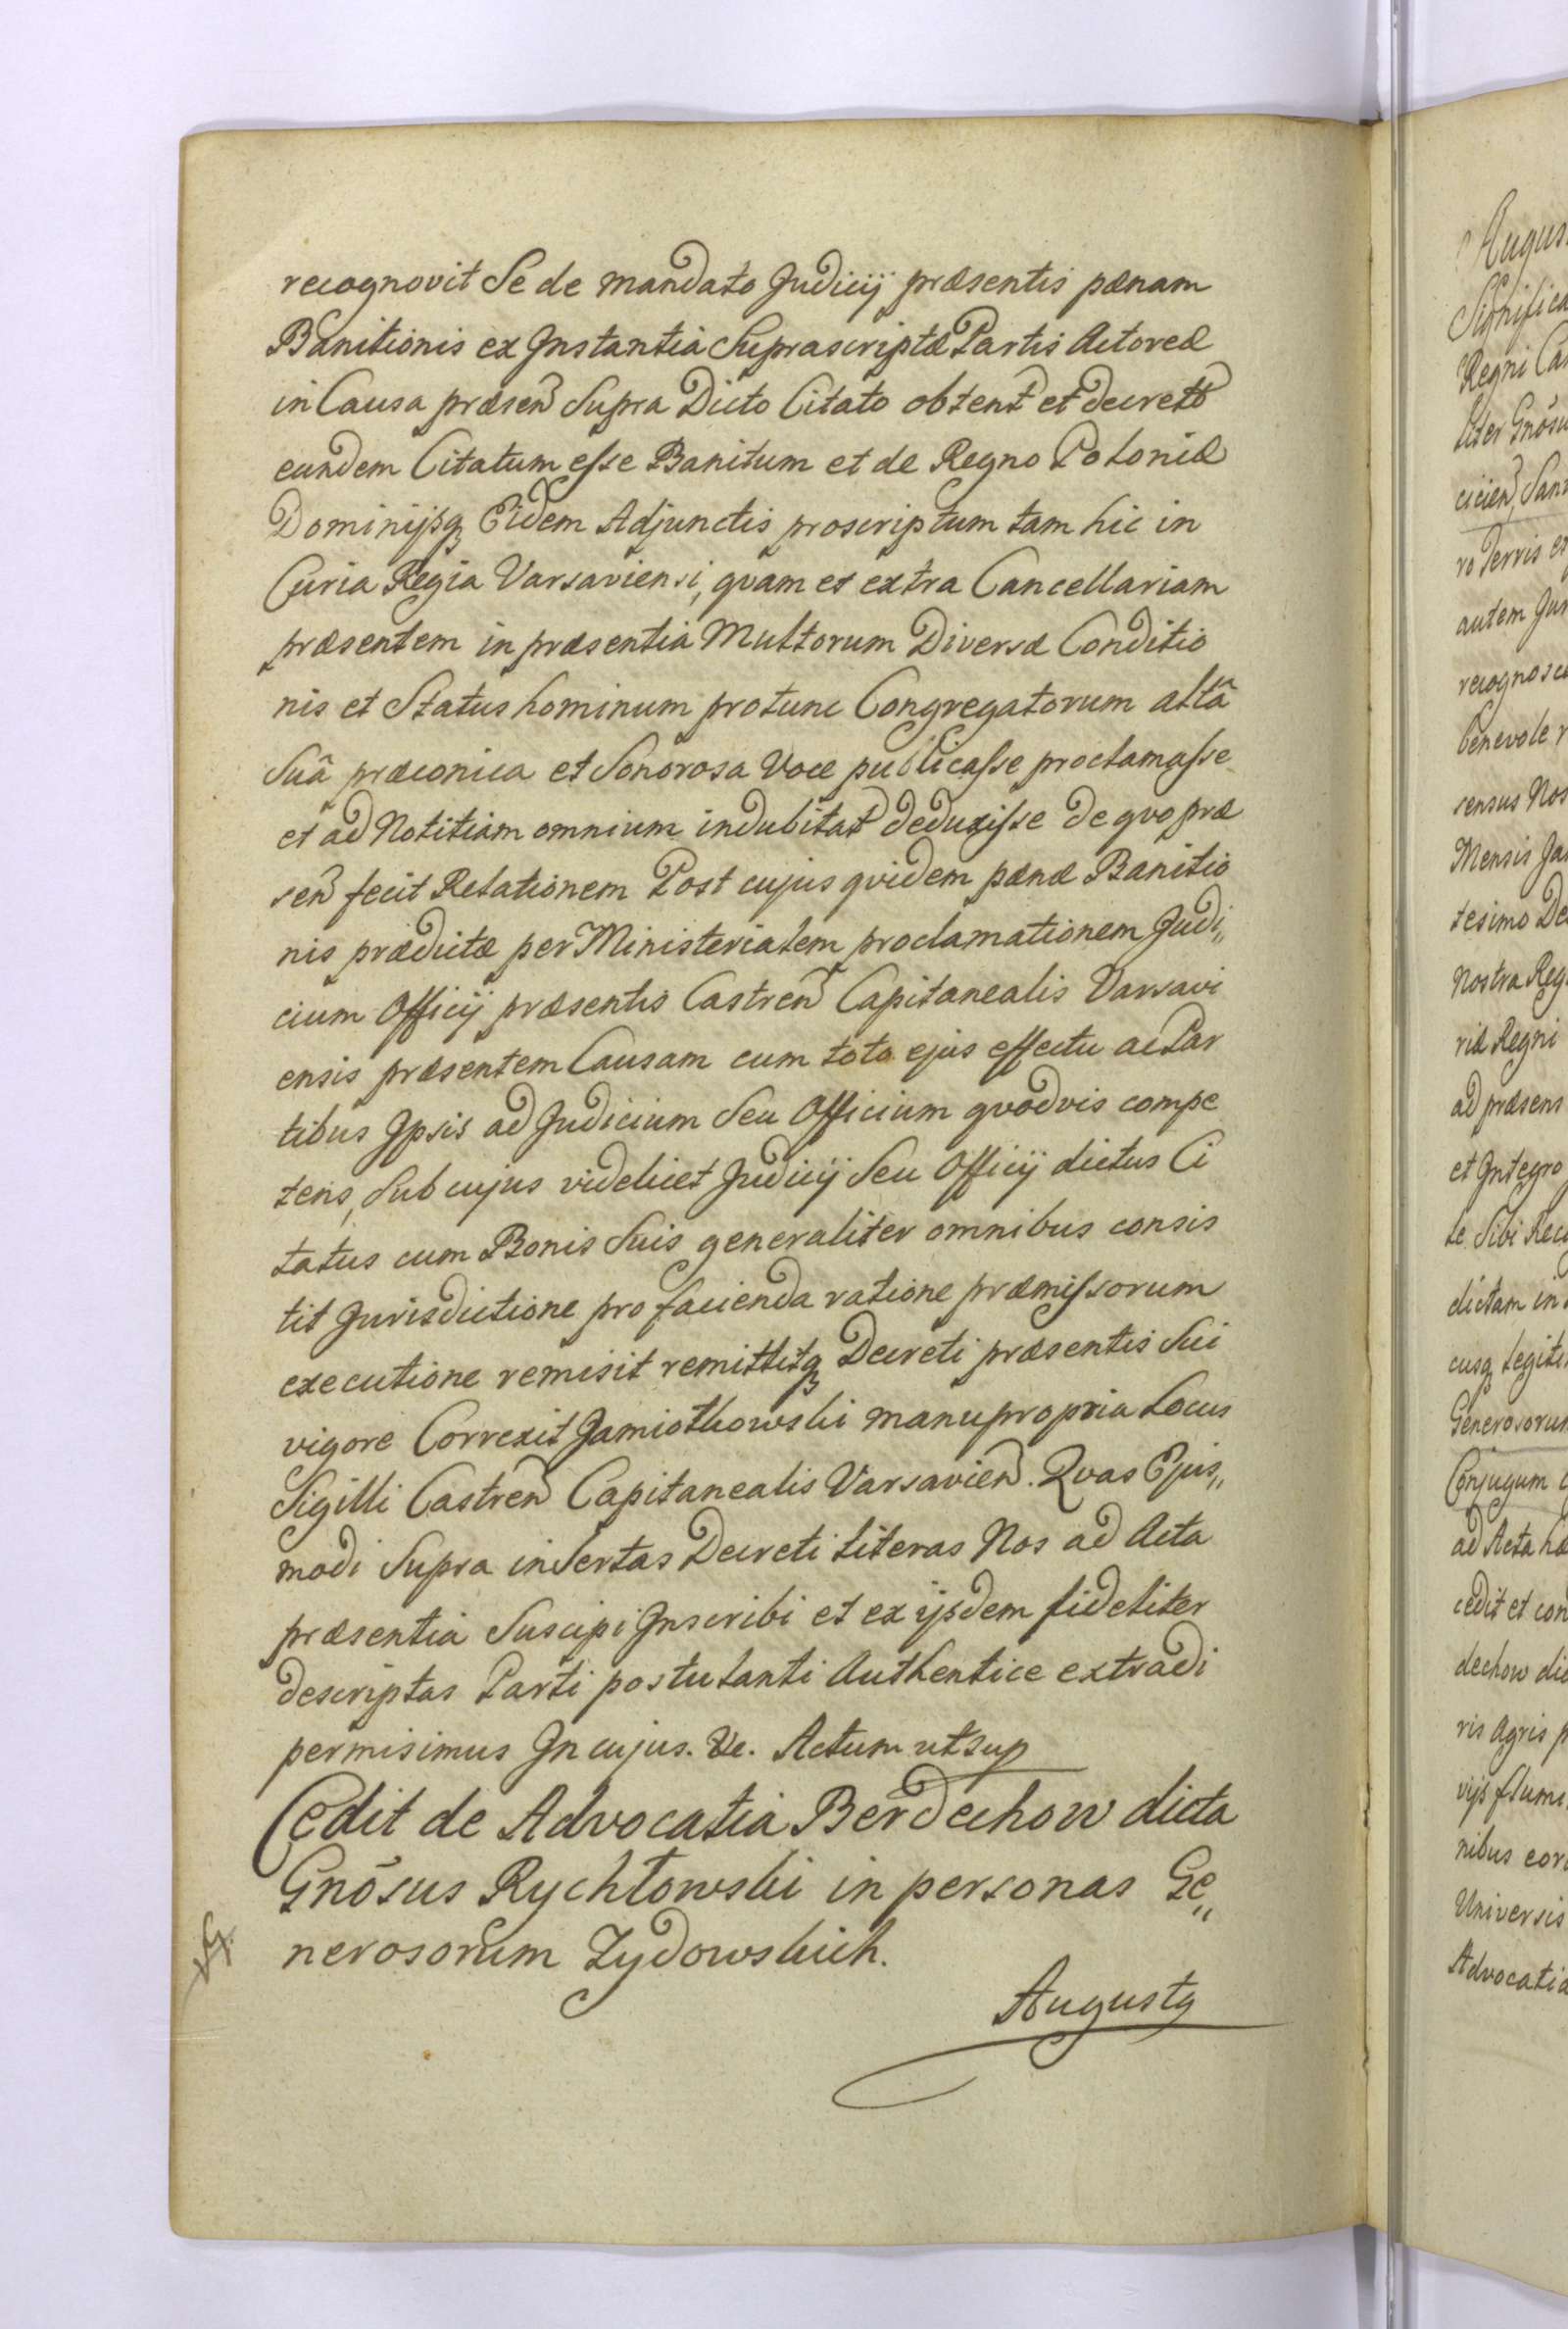 recognovit Se de mandato Judicij præsentis pænam
Banitionis ex Jnstantia Suprascriptæ Partis Actoreæ
in Causa præsen Supra Dicto Citato obtent et decrett
eundem Citatum esse Banitum et de Regno Poloniæ
Dominijsq Eidem Adjunctis proscriptum tam hic in
Curia Regia Varsaviensi, qvam et extra Cancellariam
præsentem in præsentia Multorum Diversæ Conditio
nis et Status hominum protunc Congregatorum altâ
Suâ præconica et Sonorosa Voce publicasse proclamasse
et ad Notitiam omnium indubitat deduxisse de qvo præ
sen fecit Relationem Post cujus qvidem pænæ Banitio
nis prædictæ per Ministerialem proclamationem Judi„
cium Officij præsentis Castren Capitanealis Varsavi
ensis præsentem Causam cum toto ejus effectu ac Par
tibus Jpsis ad Judicium Seu Officium qvodvis compe
tens, Sub cujus videlicet Judicij Seu Officij dictus Ci
tatus cum Bonis Suis generaliter omnibus consis
tit Jurisdictione pro facienda ratione præmissorum
executione remisit remittitq Decreti præsentis Sui
vigore Correxit Jamiołkowski manu propria Locus
Sigilli Castren Capitanealis Varsavien. Qvas Ejus„
modi Supra insertas Decreti literas Nos ad Acta
præsentia Suscipi Jnscribi et ex ijsdem fideliter
descriptas Parti postulanti Authentice extradi
permisimus Jn cujus. &c. Actum ut sup
Cedit de Advocatia Berdechow dicta
Gnõsus Rychłowski in personas Ge„
nerosorum Zydowskich.
Augustq
Augus
Significa
Regni Ca
liter Gnõsu
cicien, San
ro Terris e
autem Jur
recognosce
benevole r
sensus Nos
Mensis Ja
tesimo De
Nostra Reg
riæ Regni
ad præsens
et Jntegro
te Sibi Rec
dictam in
cusq legiti
Generosoru
Conjugum
ad Acta hæ
cedit et con
dechow dic
ris Agris p
vijs flumi
nibus eor
Universis
Advocatia